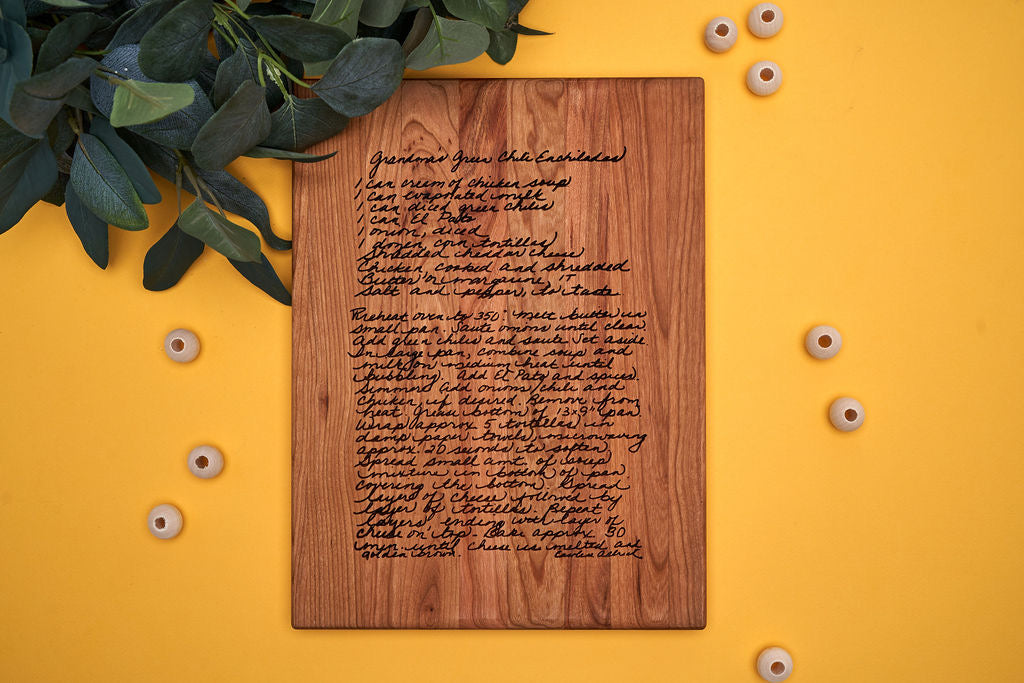 Grandma's Green Chili Enchiladas
1 can cream of chicken soup
1 can evaporated milk
1 can diced green chilis
1 can El Pato
1 onion, diced
1 dozen corn tortillas
Shredded cheddar cheese
Chicken, cooked and shredded
Butter or margarine, 1T
Salt and pepper, to taste
Preheat oven to 350°. Melt butter in
small pan. Saute onions until clear.
Add green chilis and saute. Set aside.
In large pan, combine soup and
milk on medium heat until
bubbling. Add El Pato and spices.
Simmer. Add onions/chili and
chicken, if desired. Remove from
heat. Grease bottom of 13x9" pan.
Wrap approx 5 tortillas in
damp paper towels, microwaving
approx. 20 seconds to soften.
Spread small amt. of soup
mixture in bottom of pan
covering the bottom. Spread
layers of cheese followed by
layer of tortillas. Repeat
layers, ending with layer of
cheese on top. Bake approx 30
min. until cheese is melted and
golden brown.